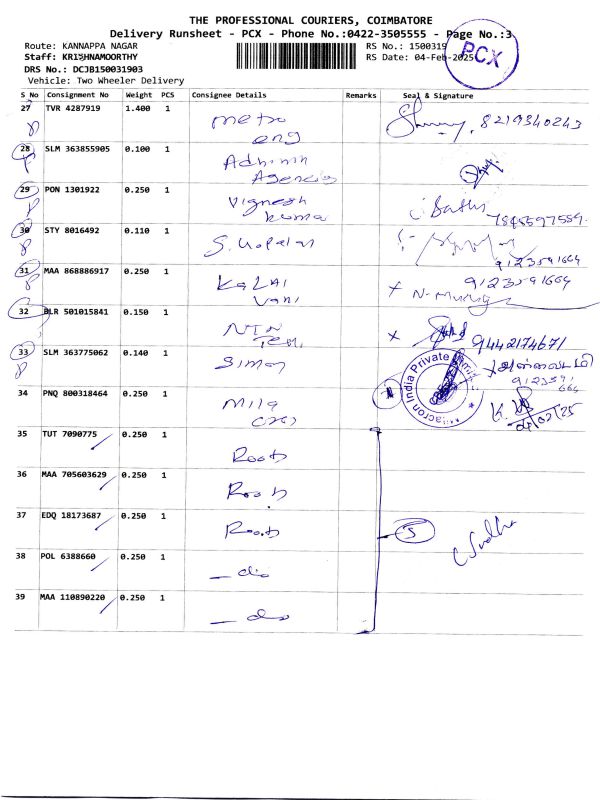 THE PROFESSIONAL COURIERS, COIMBATORE
Delivery Runsheet - PCX - Phone No.:0422-3505555 - Page No.:3
Route: KANNAPPA NAGAR
RS No.: 1500319
PCX
Staff: KRISHNAMOORTHY
RS Date: 04-Feb-2025
DRS No.: DCJB150031903
Vehicle: Two Wheeler Delivery
S No Consignment No Weight PCS Consignee Details Remarks Seal & Signature
27 TVR 4287919 1.400 1 metro 8219340243
eng
28 SLM 363855905 0.100 1
Agencies
29 PON 1301922 0.250 1 Vignesh
kuma 7845597559
30 STY 8016492 0.110 1 S.
9123591664
31 MAA 868886917 0.250 1 KALAI 9123591664
Vani
32 BLR 501015841 0.150 1 NTN 9442174671
33 SLM 363775062 0.140 1 Simon
India Private
9123591
664
34 PNQ 800318464 0.250 1 Mila
04/02/25
35 TUT 7090775 0.250 1 Roots
36 MAA 705603629 0.250 1 Roots
37 EDQ 18173687 0.250 1 Roots 5
38 POL 6388660 0.250 1 — do
39 MAA 110890220 0.250 1 — do